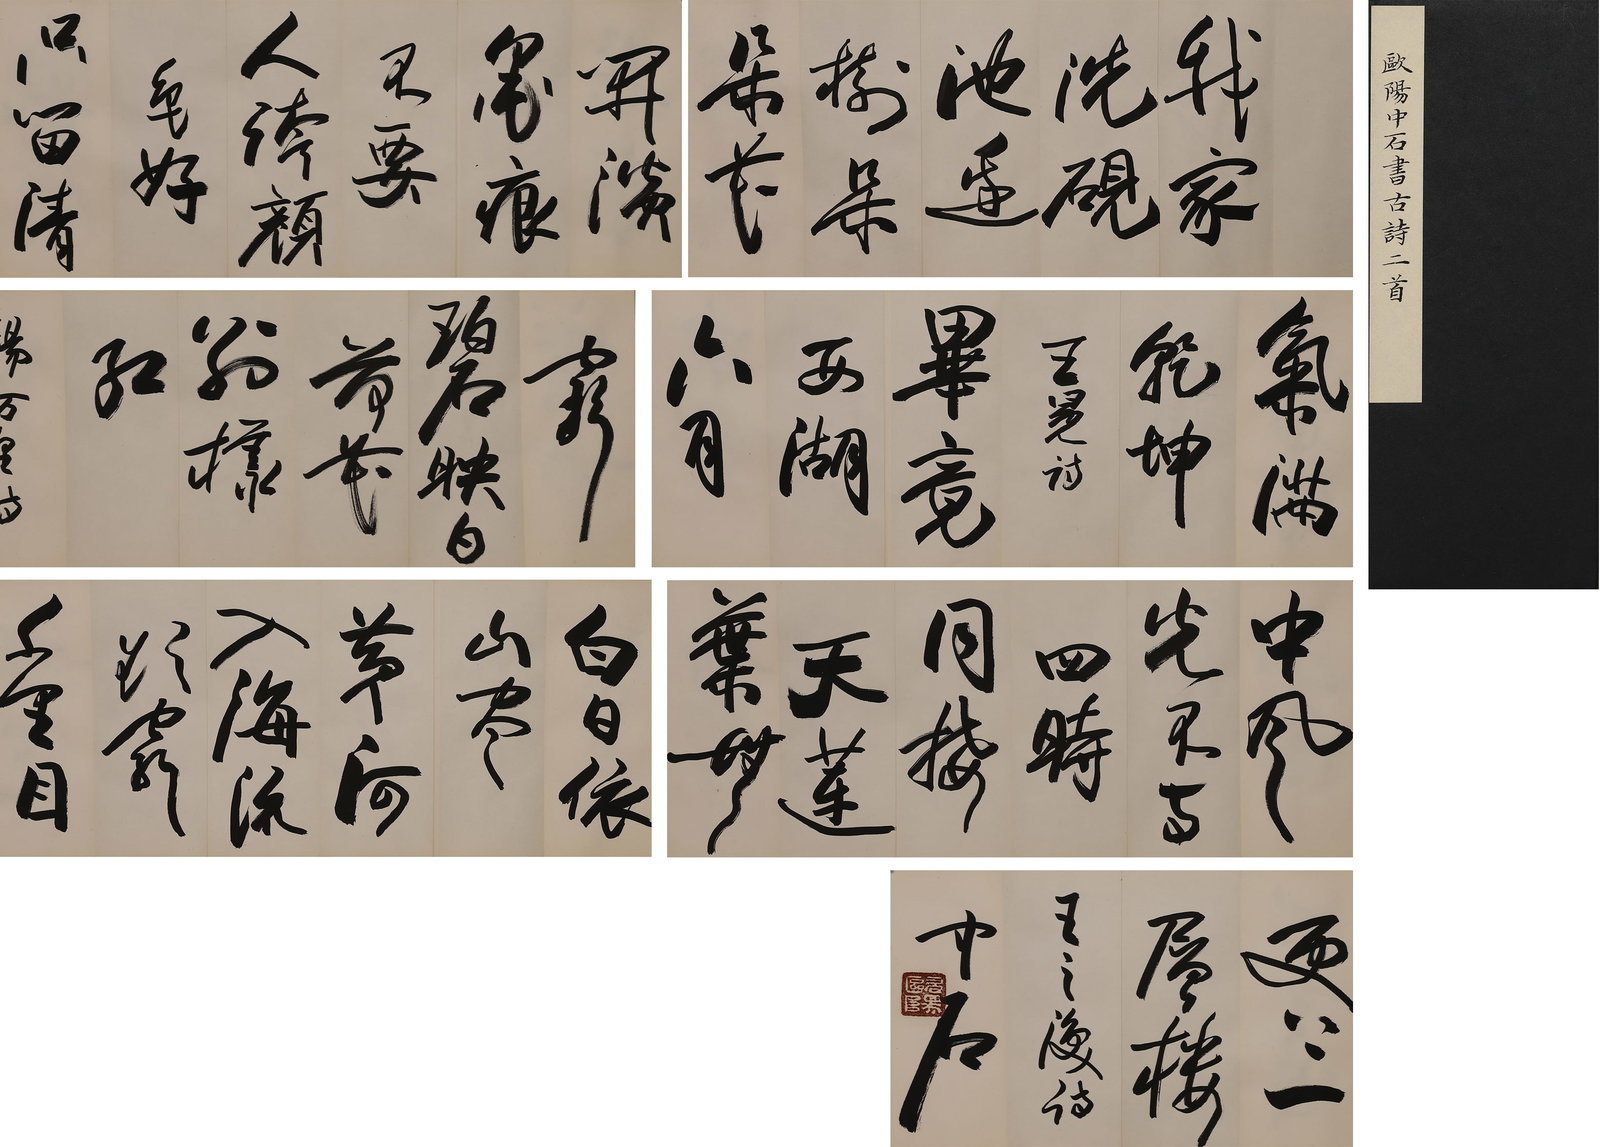 歐陽中石書古詩二首
我家
洗硯
池邊
樹朵
朵花
開淡
墨痕
不要
人誇顏
色好
只留清
氣滿
乾坤
王冕詩
畢竟
西湖
六月
中風
光不与
四時
同接
天蓮
葉無
窮
碧映日
荷花
別樣
红
楊万里詩
白日依
山尽
黄河
入海流
欲窮
千里目
更上一
層樓
王之渙詩
中石